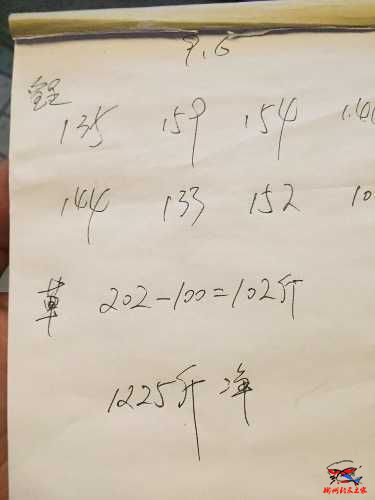 135 159 154
144 133 152 10
草 202-100=102斤
1225斤 净